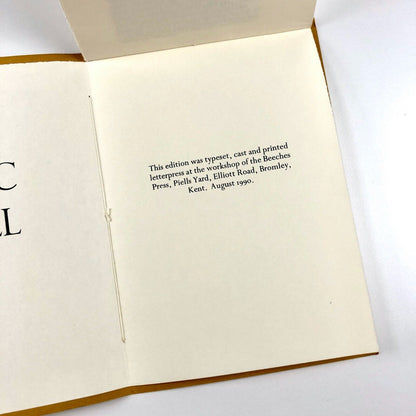 C
LL
This edition was typeset, cast and printed
letterpress at the workshop of the Beeches
Press, Piells Yard, Elliott Road, Bromley,
Kent. August 1990.